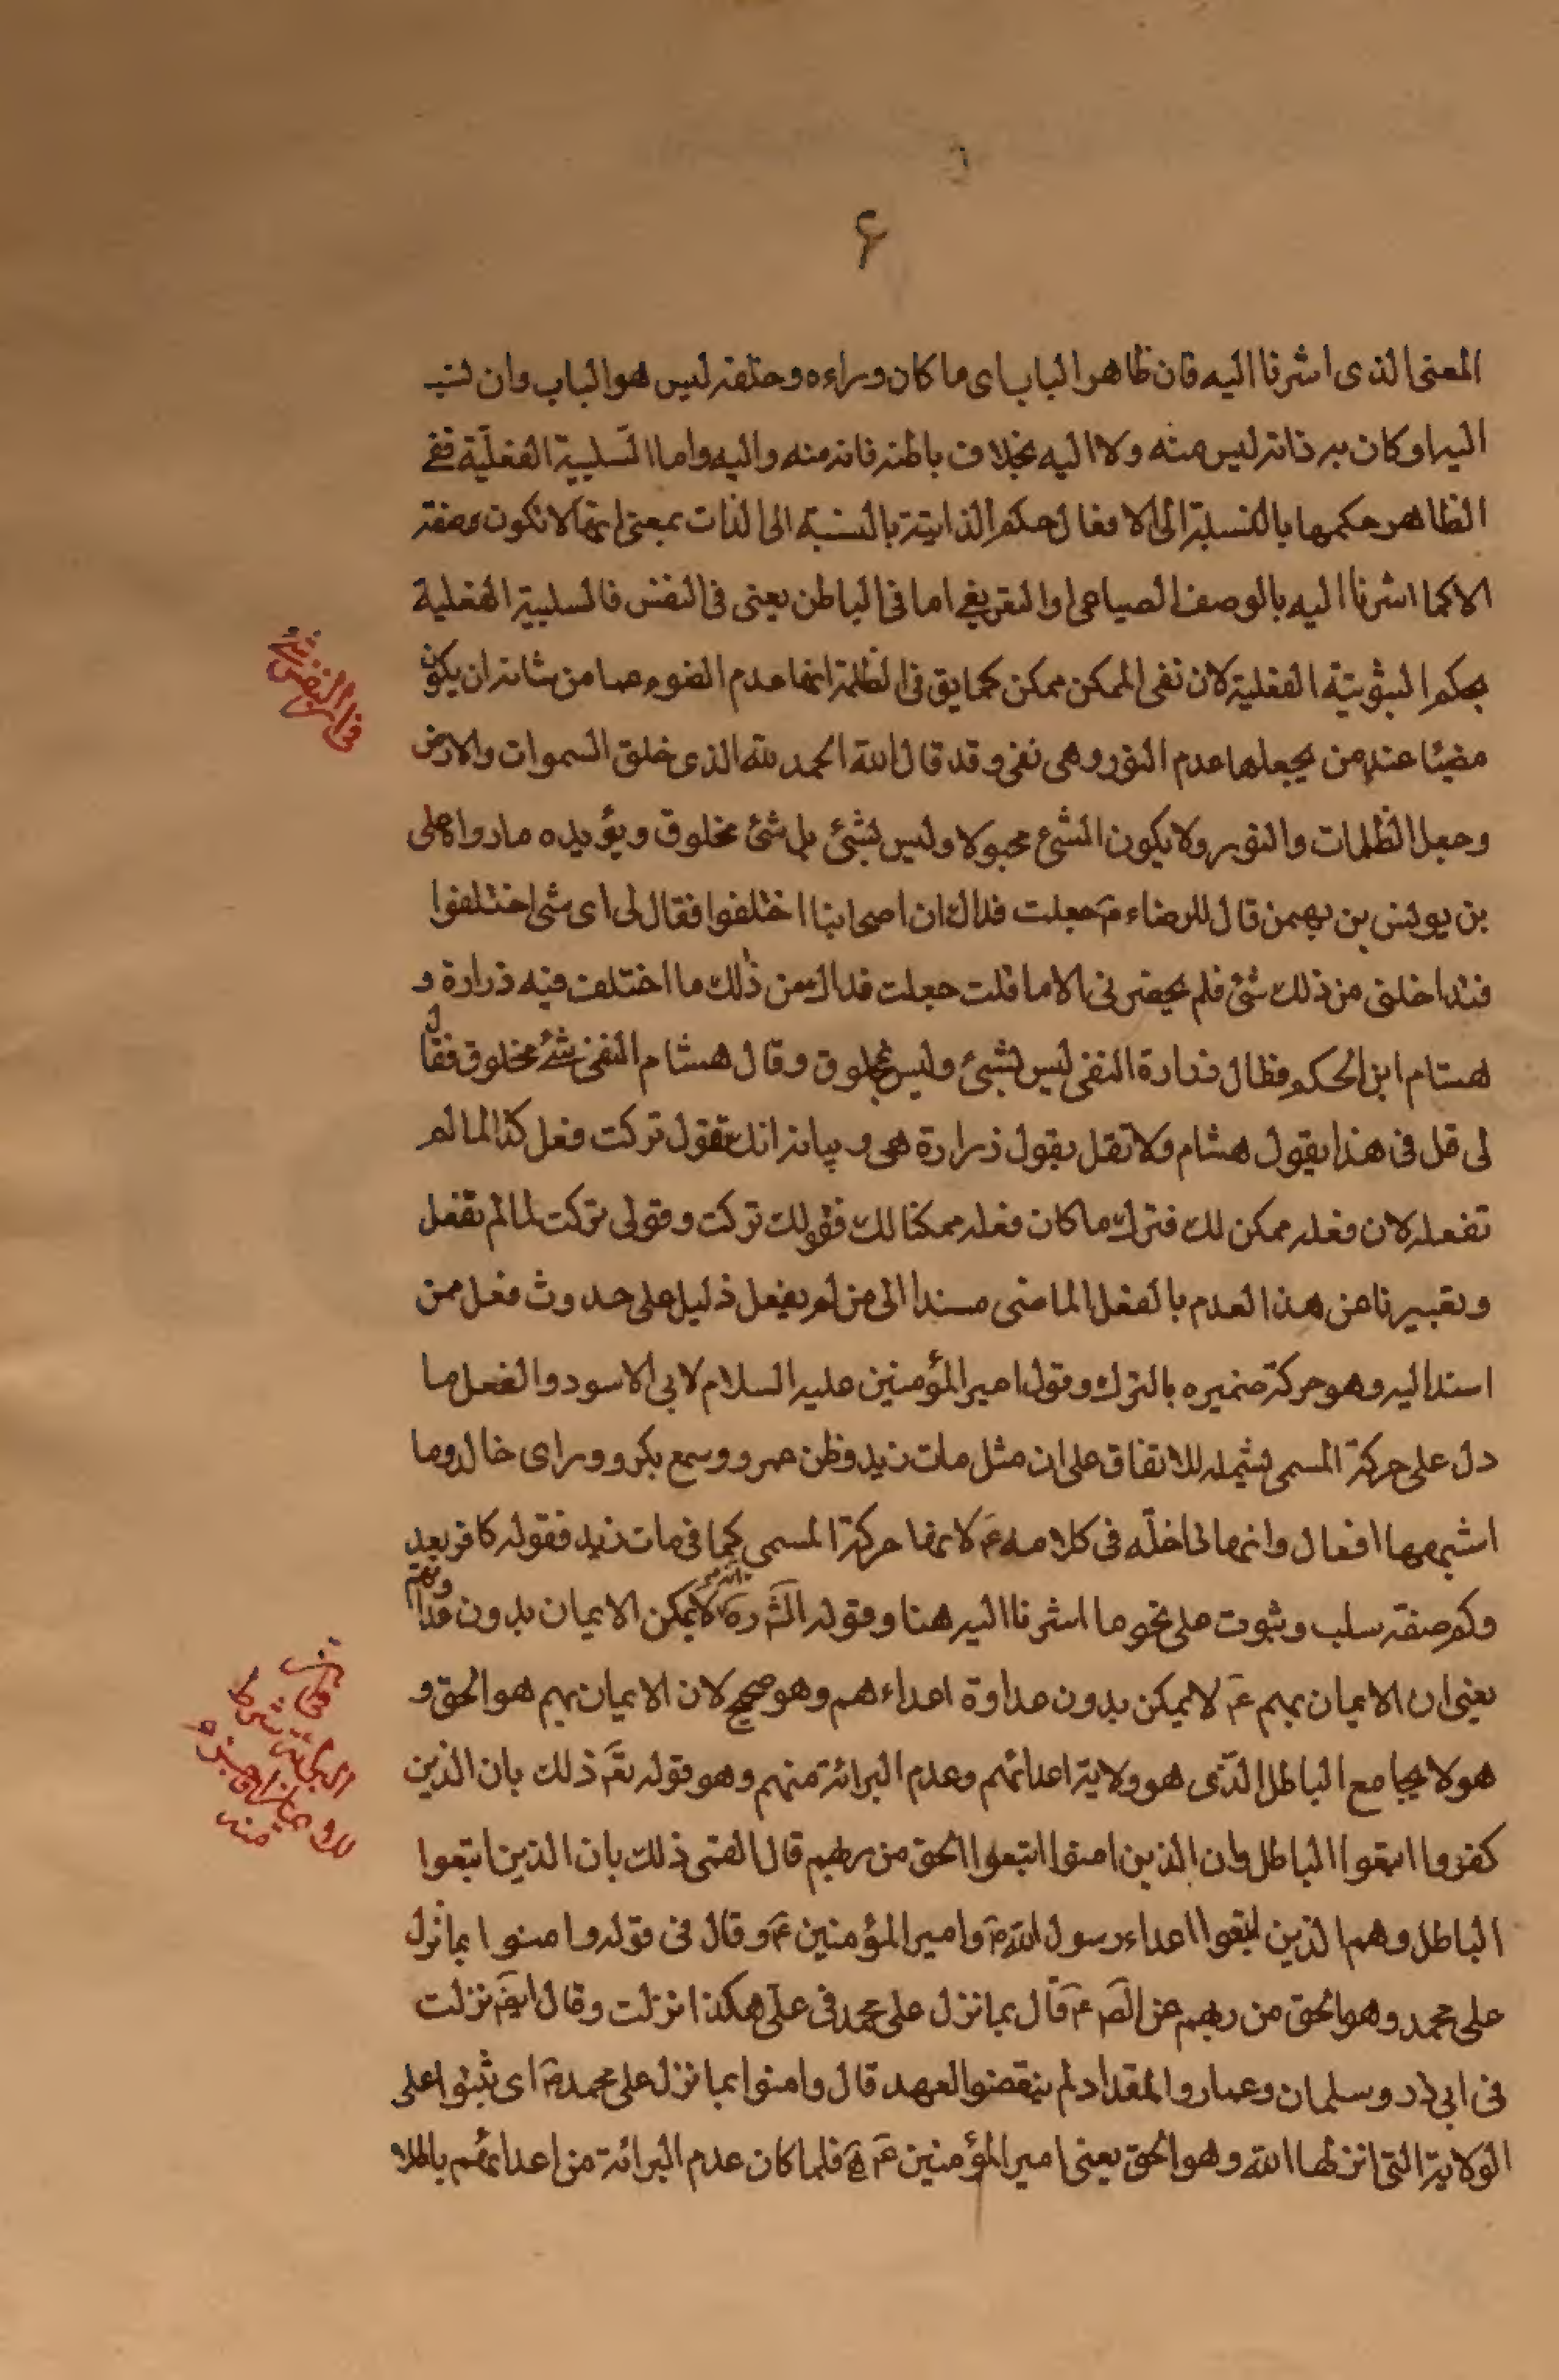 ۶
المعنى الذى اشرنا اليه فان ظاهر الباب اى ما كان وراءه وخلفه ليس هو الباب وان نسب
اليه او كان به فانه ليس منه ولا اليه بخلاف باطنه فانه منه واليه واما السّلبية الفعليّة ففى
الظاهر حكمها بالنسبة الى الافعال حكم الذاتية بالنسبة الى الذات بمعنى انها لا تكون صفة
الا كما اشرنا اليه بالوصف الصياحى او التفريغى اما فى الباطن يعنى فى النفس فالسلبية الفعلية
بحكم الثبوتيّة الفعلية لان نفى الممكن ممكن كما يق فى الظلمة انها عدم الضوء عما من شانه ان يكون
فى ان النفى شئ
مضيئا عند من يجعلها عدم النور وهى نفى وقد قال الله الحمد لله الذى خلق السموات والارض
وجعل الظلمات والنور ولا يكون الشئ مجعولا وليس بشئ بل شئ مخلوق ويؤيده ما رواه على
بن يونس بن بهمن قال للرضاء ع جعلت فداك ان اصحابنا اختلفوا فقال لى اى شى اختلفوا
فتداخلنى من ذلك شئ فلم يحضرنى الا ما قلت جعلت فداك من ذلك ما اختلف فيه زرارة و
هشام ابن الحكم فقال زرارة النفى ليس بشئ وليس بمخلوق وقال هشام النفى شئ مخلوق فقال
لى قل فى هذا بقول هشام ولا تقل بقول زرارة هى وبيانه انك تقول تركت فعل كذا لما لم
تفعله لان فعله ممكن لك فترك ما كان فعله ممكنا لك فقولك تركت وقولى تركت لما لم تفعل
وتعبيرنا عن هذا العدم بالفعل الماضى مسندا الى من لم يفعل دليل على حدوث فعل ممن
اسند اليه وهو حركة ضميره بالترك وقول امير المؤمنين عليه السلام لابى الاسود والفعل ما
دل على حركة المسمى يشمله للاتفاق على ان مثل مات زيد وظن عمرو وسمع بكر وراى خالد وما
اشبهها افعال وانها داخلة فى كلامه ع لانها حركة المسمى كما فى مات زيد فقوله كافر بعدوكم
صفة سلب وثبوت على نحو ما اشرنا اليه هنا وقوله لا يمكن الايمان بدون عداوتهم
يعنى ان الايمان بهم ع لا يمكن بدون عداوة اعداءهم وهو صحيح لان الايمان بهم هو الحق و
هو لا يجامع الباطل الذى هو ولاية اعدائهم وعدم البرائة منهم وهو قوله تع ذلك بان الذين
كفروا اتبعوا الباطل وان الذين امنوا اتبعوا الحق من ربهم قال القمى ذلك بان الذين اتبعوا
الباطل وهم الذين اتبعوا اعداء رسول الله ص وامير المؤمنين ع وقال فى قوله وامنوا بما نزل
على محمد وهو الحق من ربهم عن الص ع قال بما نزل على محمد فى علّى هكذا نزلت وقال ايض نزلت
فى ابى ذر وسلمان وعمار والمقداد لم ينقضوا العهد قال وامنوا بما نزل على محمد ص اى ثبتوا على
الولاية التى انزلها الله وهو الحق يعنى امير المؤمنين ع فلما كان عدم البرائة من اعدائهم باطلا